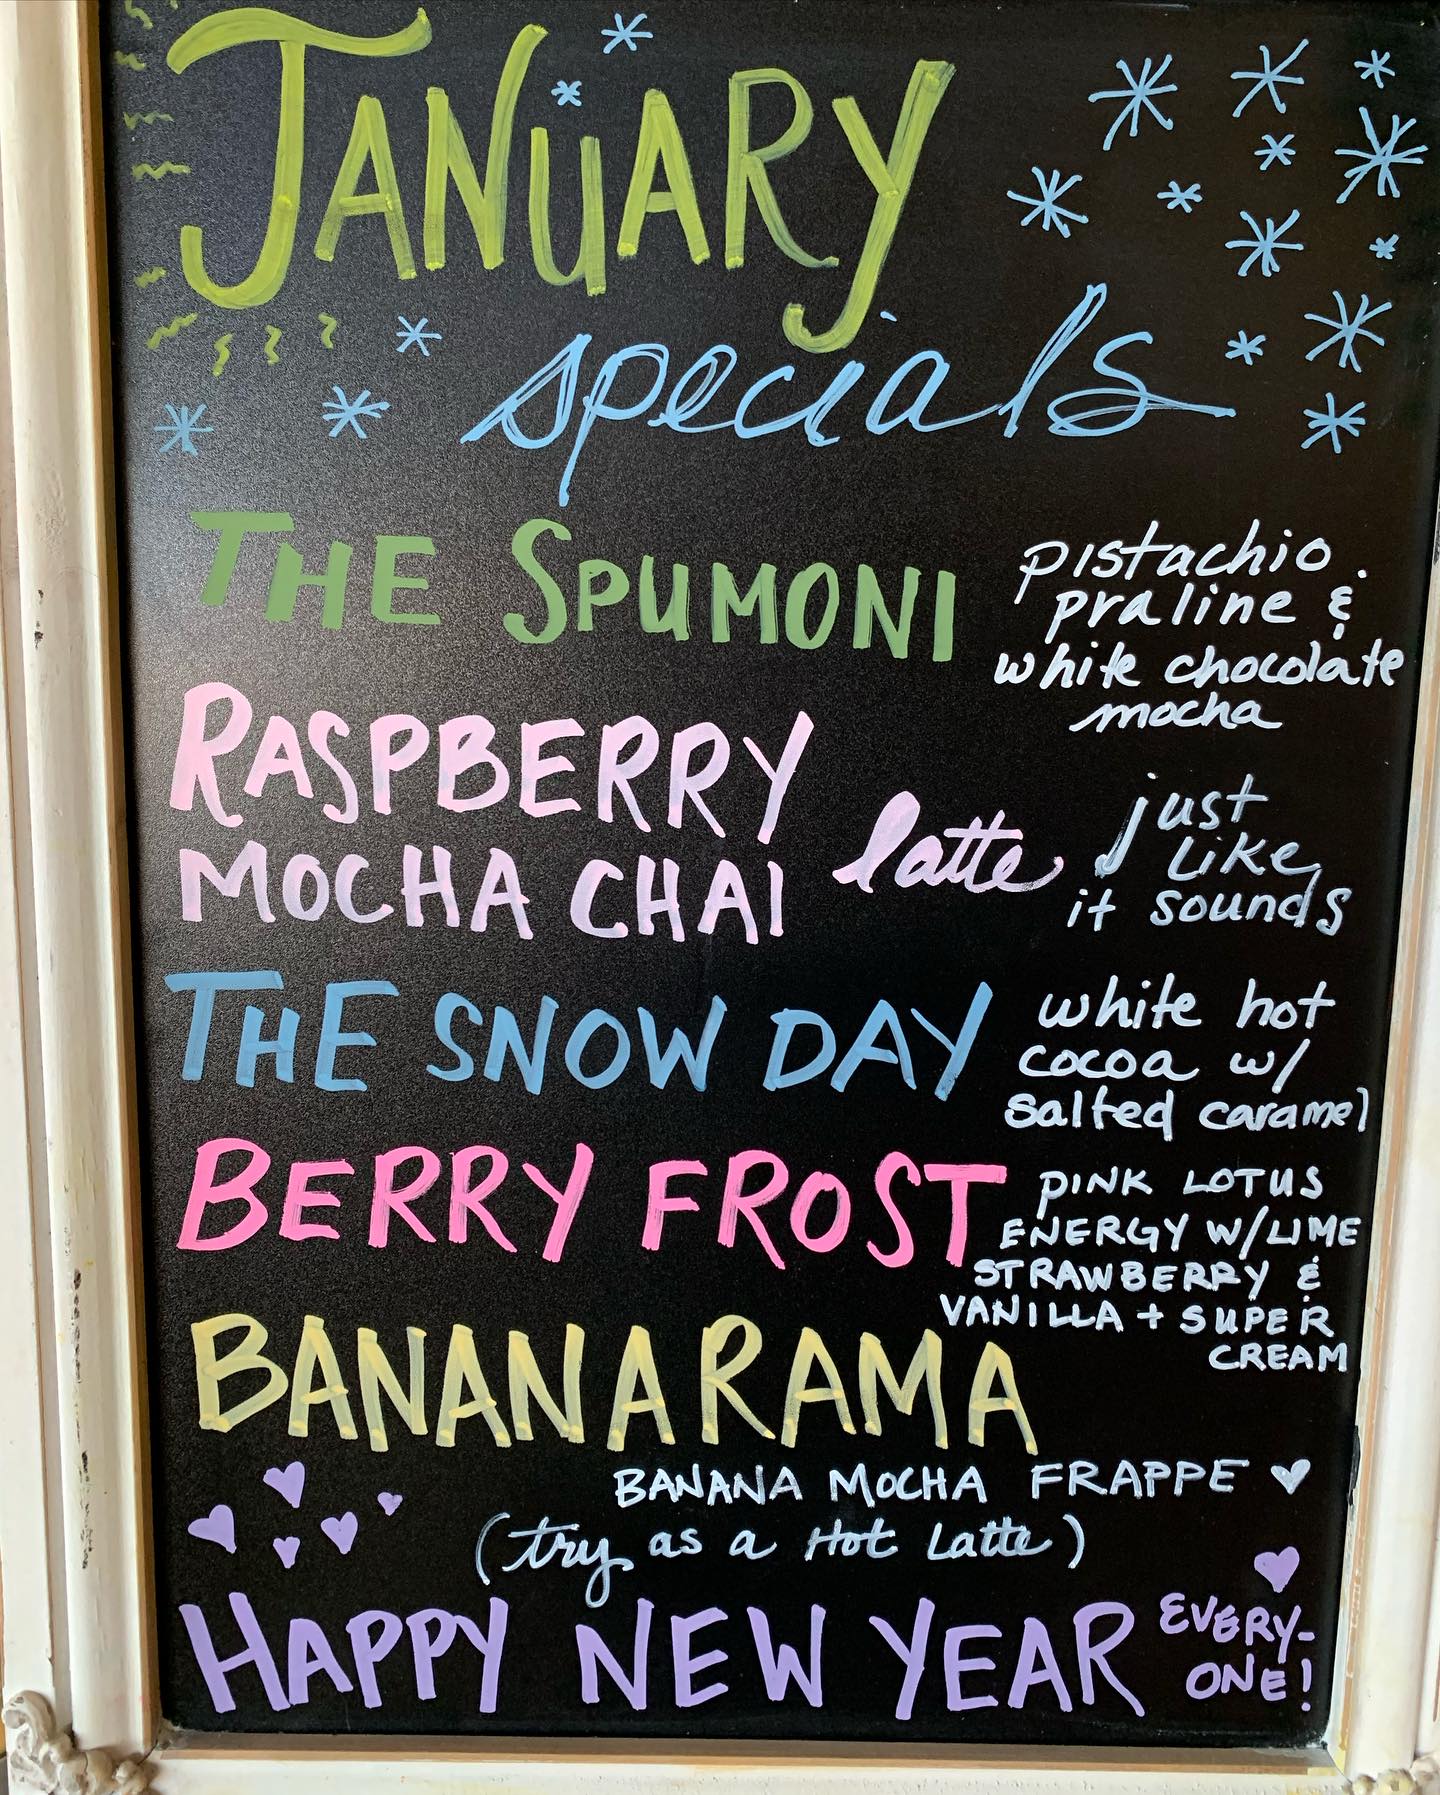 JANUARY
specials
THE SPUMONI
pistachio.
praline &
white chocolate
mocha
RASPBERRY
MOCHA CHAI latte
just
like
it sounds
THE SNOW DAY
white hot
cocoa w/
salted caramel
BERRY FROST
PINK LOTUS
ENERGY W/LIME
STRAWBERRY &
VANILLA + SUPER
CREAM
BANANARAMA
BANANA MOCHA FRAPPE
(try as a Hot Latte)
HAPPY NEW YEAR
EVERY-
ONE!